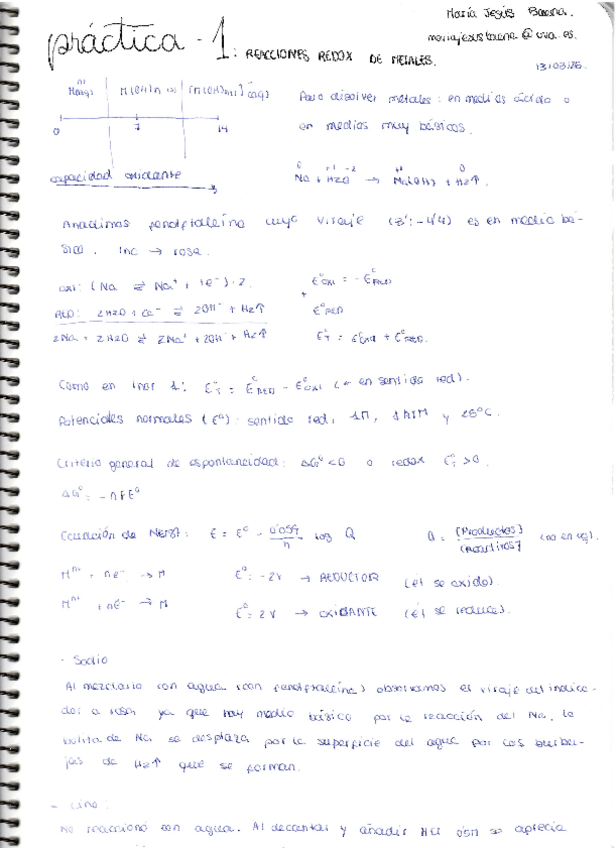 María Jesús Baena.
mariajesusbaena@uva.es.
práctica - 1: REACCIONES REDOX DE METALES.
13/03/26.
M(OH)n (s)
0 7 14
Para disolver metales: en medios ácido o
en medios muy básicos.
capacidad oxidante
Na + H2O → Na(OH) + H2↑.
Añadimos fenolftaleína cuyo viraje (8'- 44) es en medio bá-
sico. Inc → rosa.
OXI: (Na ⇌ Na+ + 1e-)·2
E°OXI = -E°RED
RED: 2H2O + 2e- ⇌ 2OH- + H2↑
E°RED
2Na + 2H2O ⇌ 2Na+ + 2OH- + H2↑
E°T = E°OXI + E°RED.
Como en inor 1: E°T = E°RED - E°OXI (* en sentido red).
Potenciales normales (E°): sentido red, 1M, 1 ATM y 25°C.
Criterio general de espontaneidad: ΔG°<0 o redox E°T >0.
ΔG° = -nFE°
Ecuación de Nerst: E = E° - 0'059/n log Q
Q = [Productos]/[reactivos]
Mn+ + ne- → M E° = -2V → REDUCTOR (él se oxida).
Mn+ + ne- → M E° = 2V → OXIDANTE (él se reduce).
- Sodio
Al mezclarlo con agua (con fenolftaleína) observamos el viraje del indica-
dor a rosa ya que hay medio básico por la reacción del Na, la
bolita de Na se desplaza por la superficie del agua por las burbu-
jas de H2↑ que se forman.
- Cinc:
No reaccionó con agua. Al decantar y añadir HCl 0'5M se aprecia